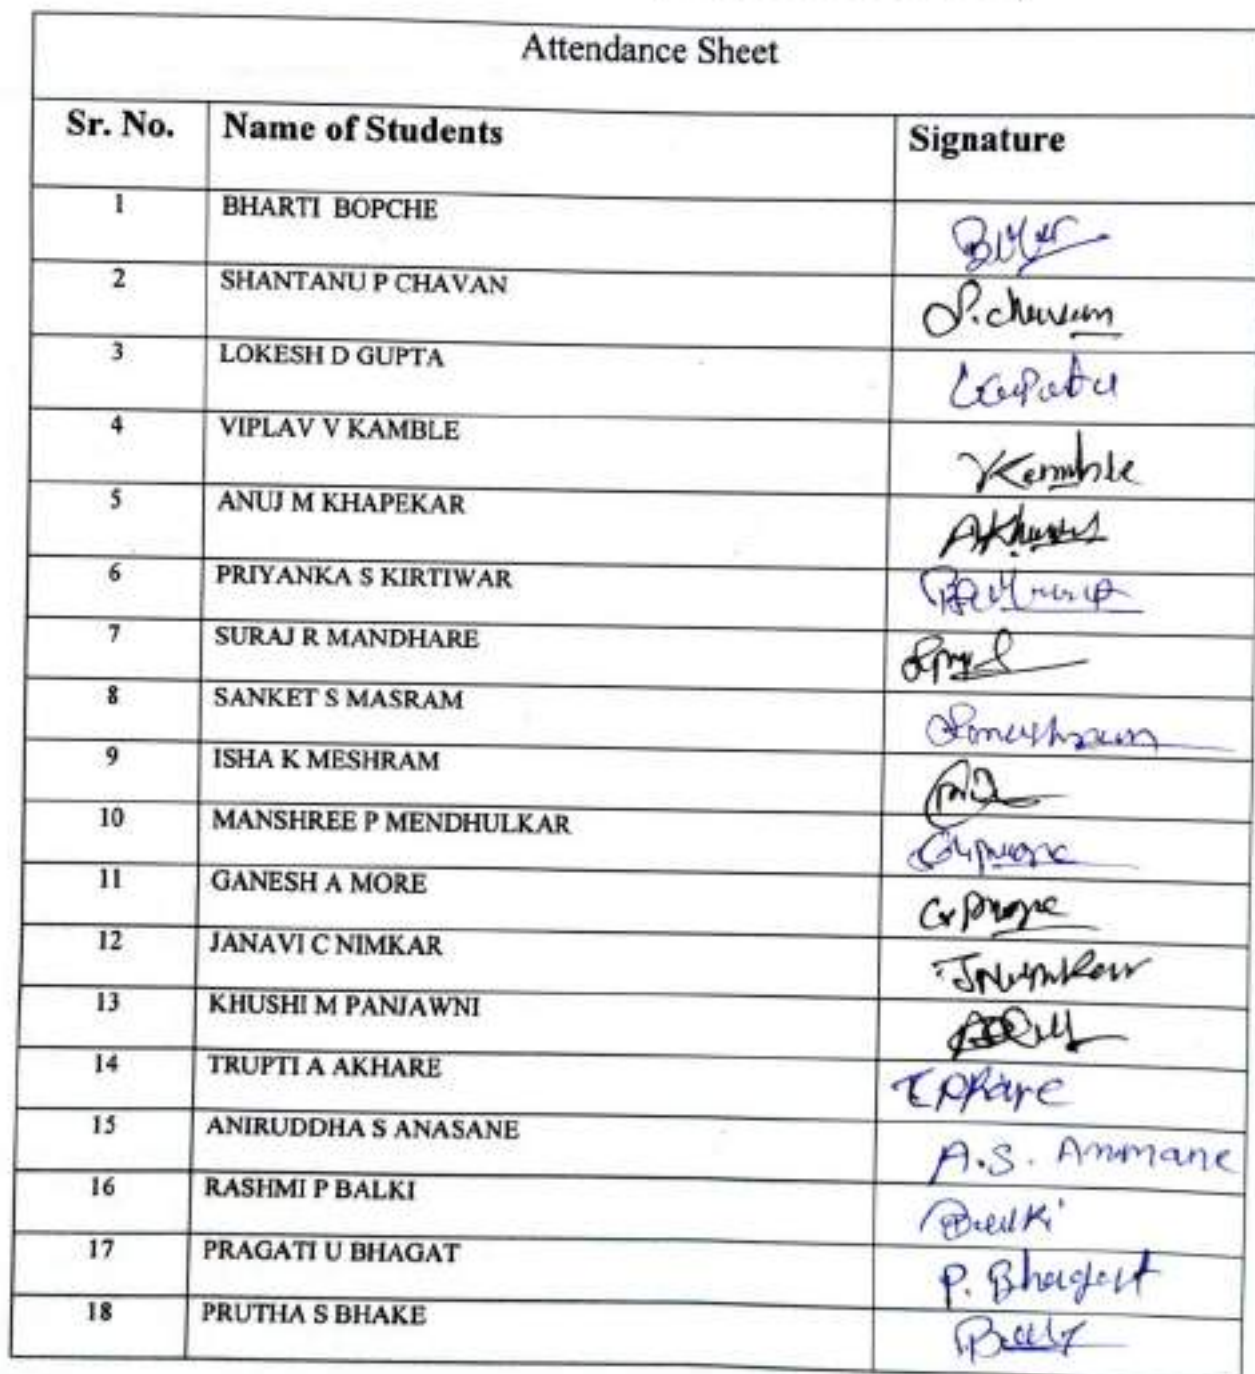 Attendance Sheet
Sr. No. Name of Students Signature
1 BHARTI BOPCHE
2 SHANTANU P CHAVAN S. chavan
3 LOKESH D GUPTA
4 VIPLAV V KAMBLE VKamble
5 ANUJ M KHAPEKAR
6 PRIYANKA S KIRTIWAR
7 SURAJ R MANDHARE
8 SANKET S MASRAM
9 ISHA K MESHRAM
10 MANSHREE P MENDHULKAR
11 GANESH A MORE
12 JANAVI C NIMKAR JNimkar
13 KHUSHI M PANJAWNI
14 TRUPTI A AKHARE
15 ANIRUDDHA S ANASANE A.S.
16 RASHMI P BALKI Balki
17 PRAGATI U BHAGAT P. Bhagat
18 PRUTHA S BHAKE